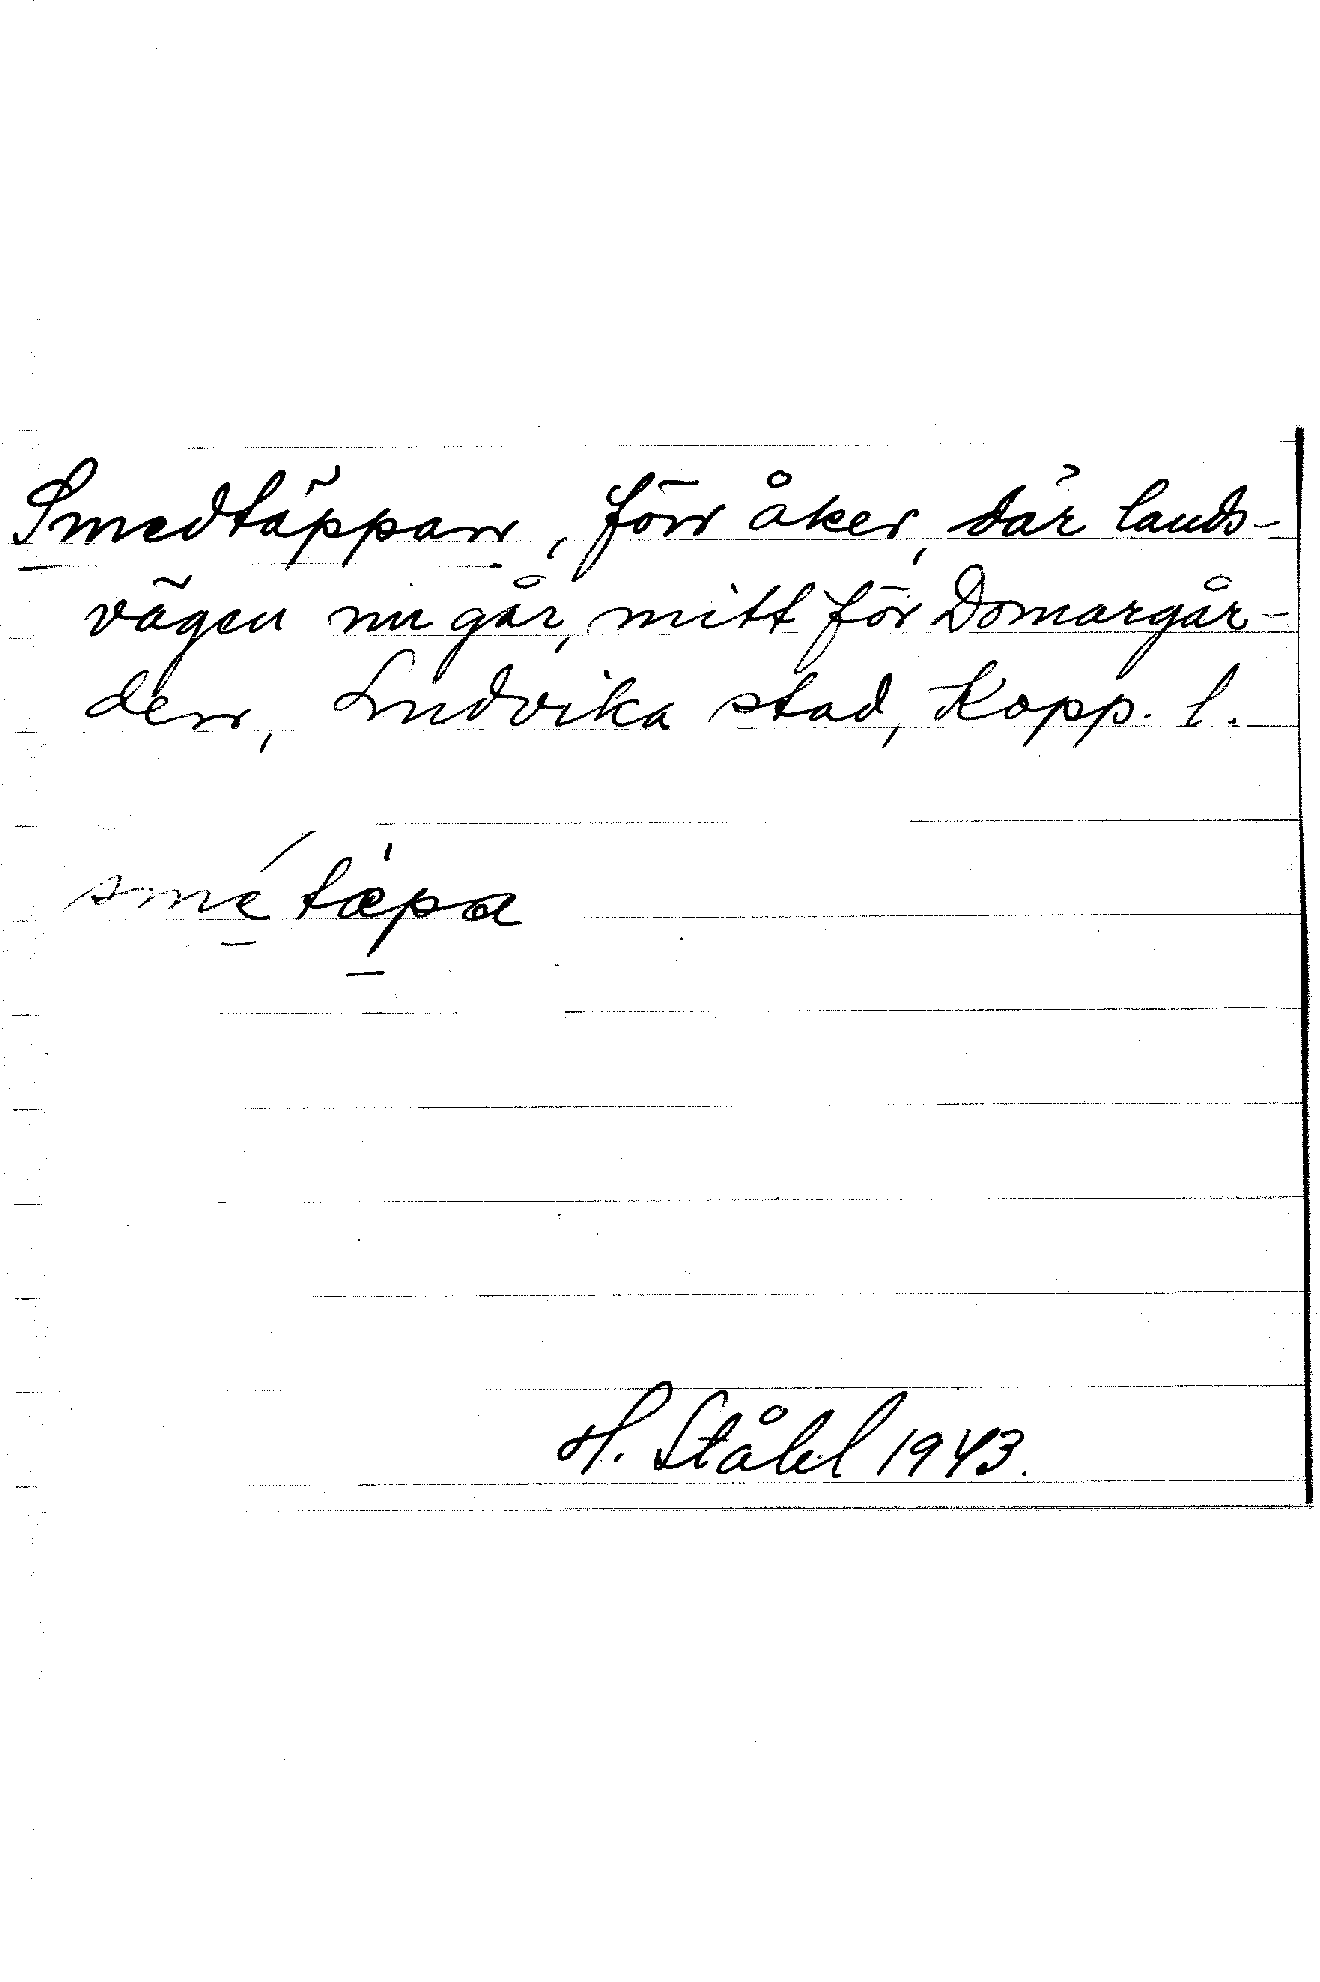 Smedtäppan, förr åker, där lands-
vägen nu går, mitt för Domargår-
den, Ludvika stad, Kopp. l.
smé tæ̀pa
H. Ståhl 1943.